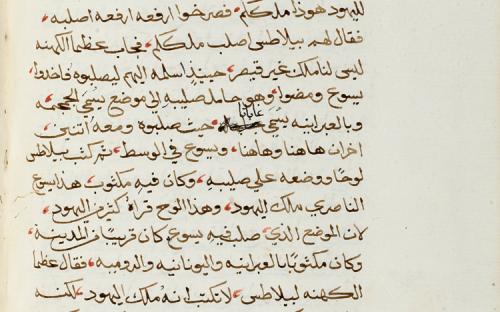 لليهود هوذا ملككم فصرخوا ارفعه ارفعه اصلبه
فقال لهم بيلاطس اصلب ملككم فاجاب عظما الكهنه
ليس لنا ملك غير قيصر حينيذ اسلمه اليهم ليصلبوه فاخذوا
يسوع ومضوا وهو حامل صليبه الي موضع يسمي الجمجمه
وبالعبرانيه يسمي حيث صلبوه ومعه اثنين
اخران هاهنا وهاهنا ويسوع في الوسط ثم كتب بيلاطس
لوحا ووضعه علي صليبه وكان فيه مكتوب هذا يسوع
الناصري ملك اليهود وهذا اللوح قراه كثير من اليهود
لان الموضع الذي صلب فيه يسوع كان قريبا من المدينه
وكان مكتوبا بالعبرانيه واليونانيه والروميه فقال عظما
الكهنه لبيلاطس لا تكتب انه ملك اليهود لكنه